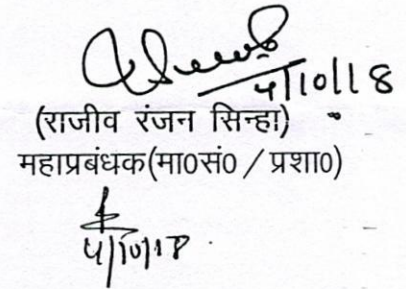 4/10/18
(राजीव रंजन सिन्हा)
महाप्रबंधक(मा०सं० / प्रशा०)
4/10/18